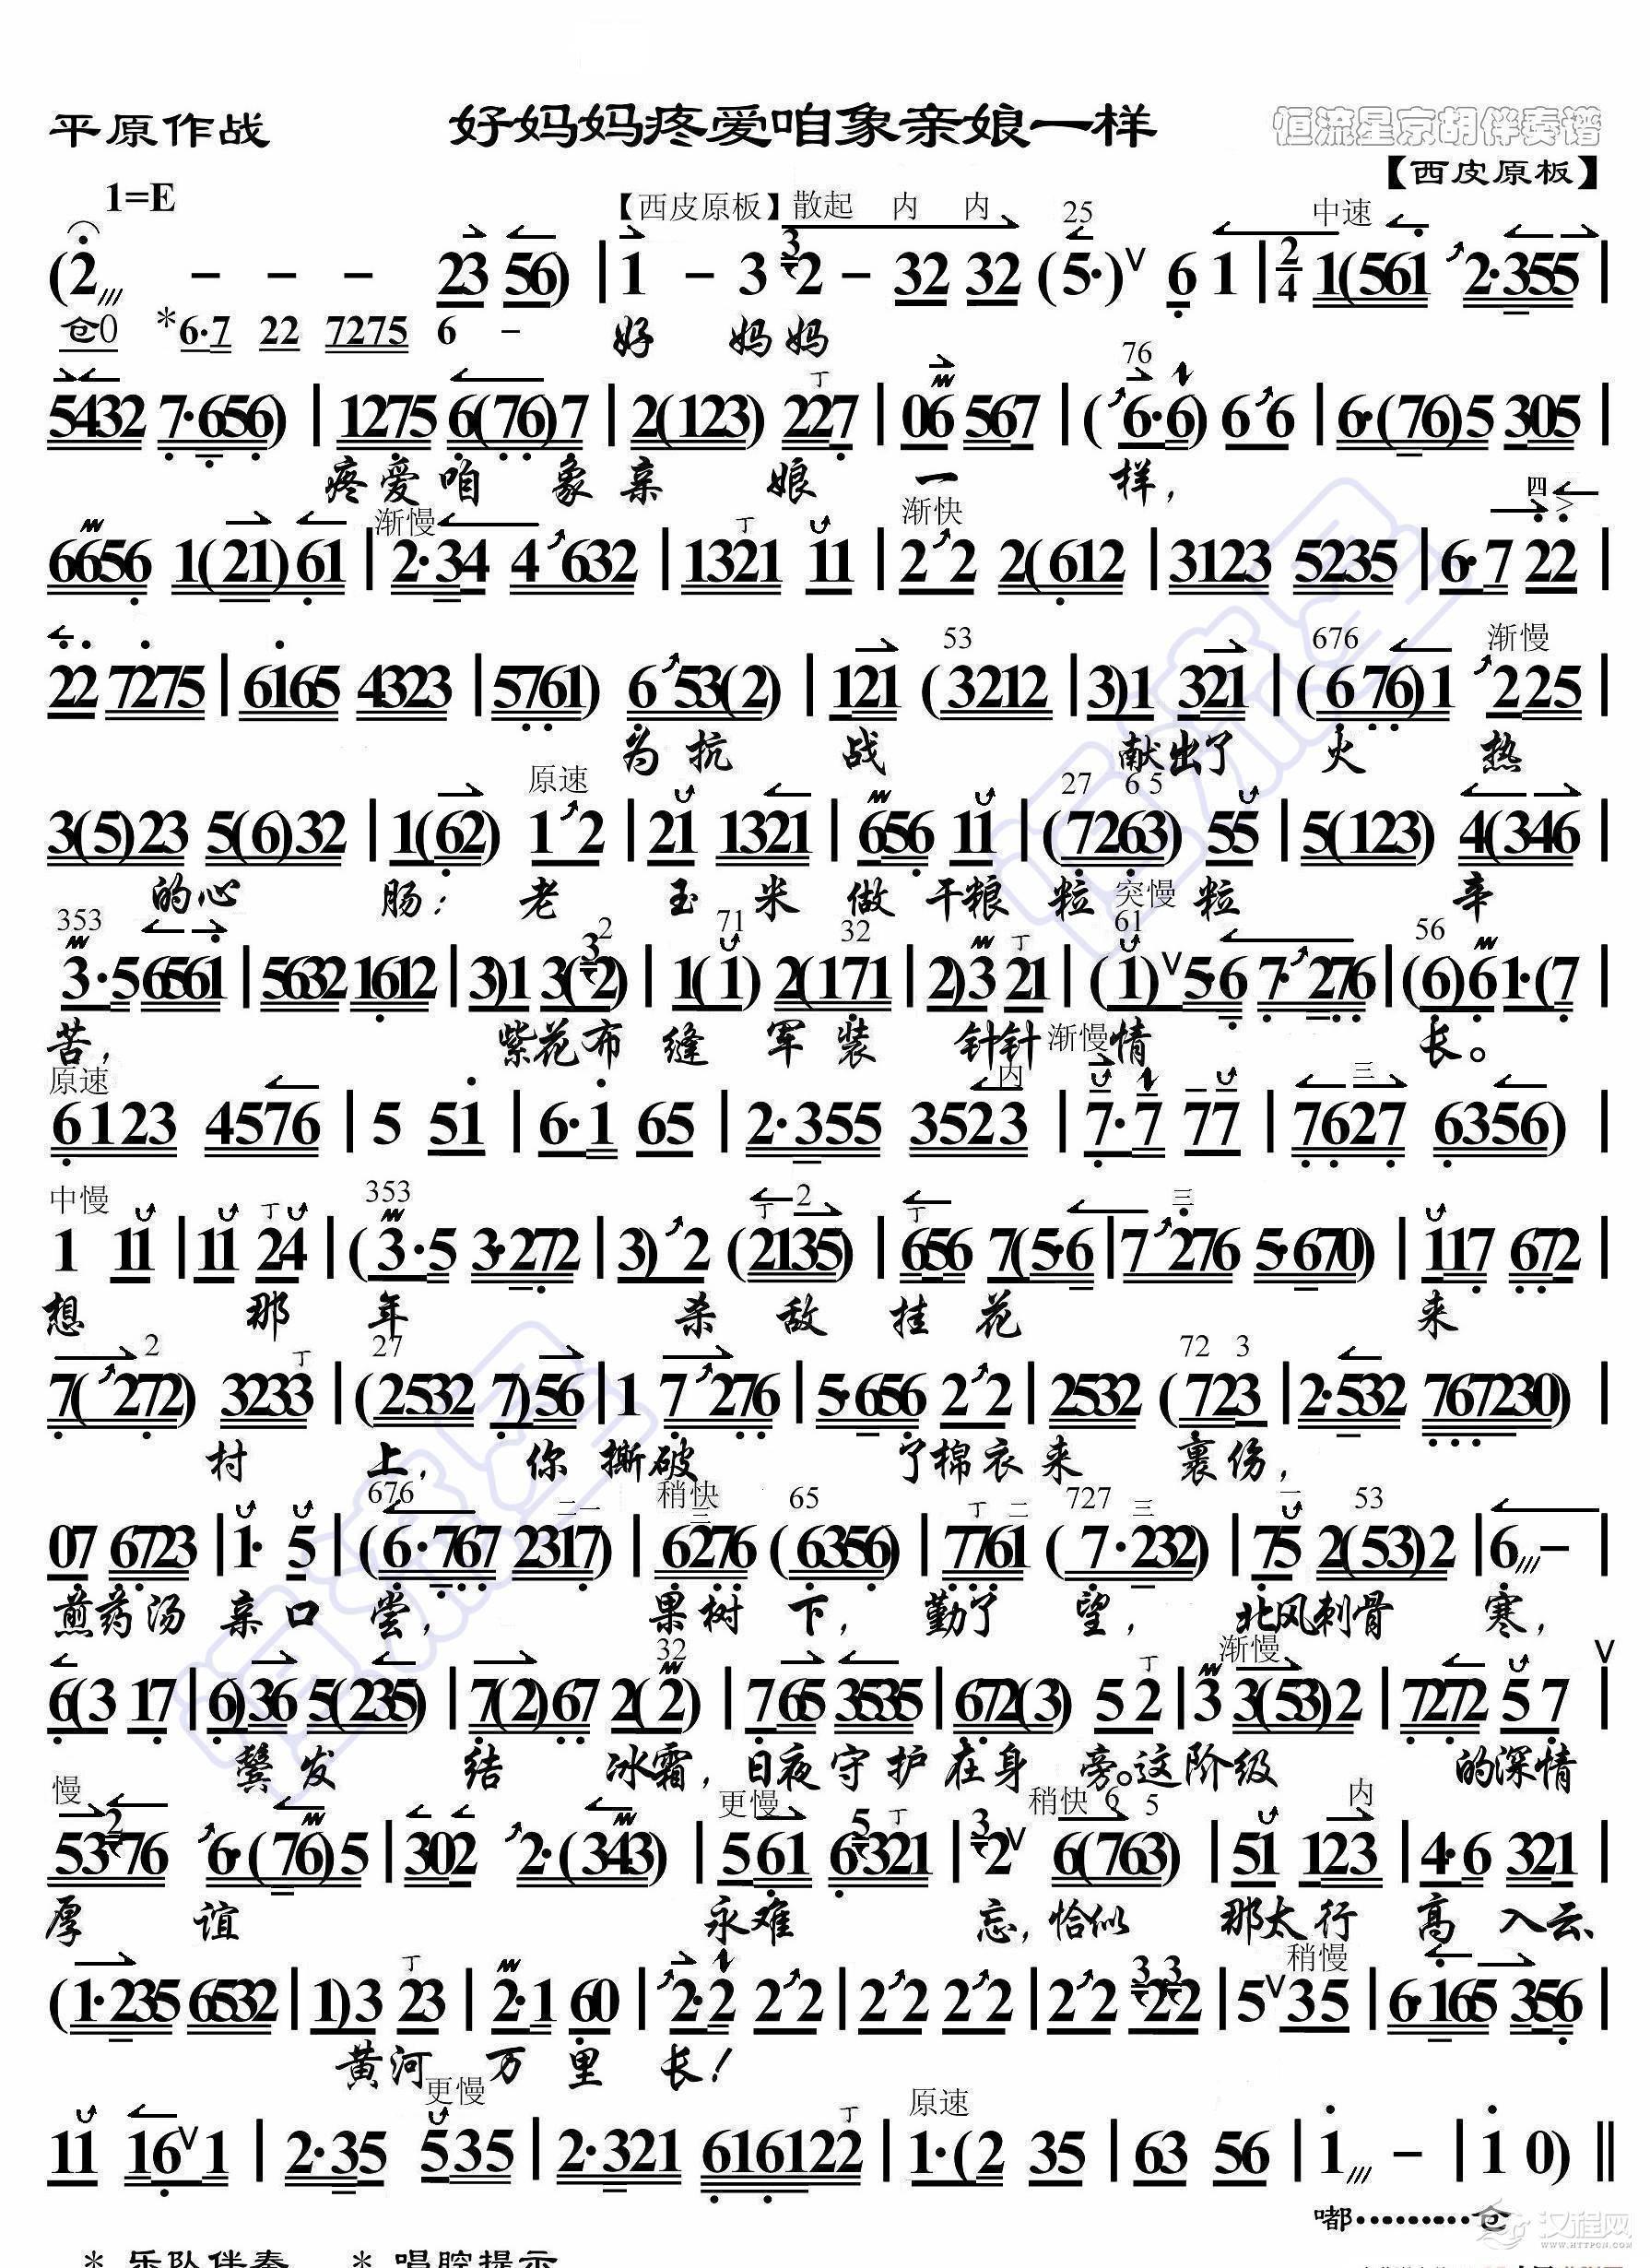 平原作战 好妈妈疼爱咱象亲娘一样 恒流星京胡伴奏谱
【西皮原板】
1=E 【西皮原板】散起 内 内 25 中速
(2 - - - 23 56) | 1 - 3 3 2 - 32 32 (5·) V 6 1 | 2/4 1(561 2·355 |
仓0 *6·7 22 7275 6 - 好 妈妈
76
5432 7·656) | 1275 6(76)7 | 2(123) 227 | 06 567 | (6·6) 66 | 6·(76)5 305 |
疼爱咱 象亲 娘 一 样,
渐慢 渐快 四
6656 1(21)61 | 2·34 4632 | 1321 11 | 22 2(612 | 3123 5235 | 6·7 22 |
53 676 渐慢
22 7275 | 6165 4323 | 5761) 653(2) | 121 (3212 | 3)1 321 | (676)1 225 |
为抗 战 献出了 火 热
原速 27 6 5
3(5)23 5(6)32 | 1(62) 12 | 21 1321 | 656 11 | (7263) 55 | 5(123) 4(346 |
的心 肠: 老 玉 米 做 干粮 粒 突慢 粒 辛
353 2 71 32 61 56
3·5 6561 | 5632 1612 | 3)1 3(3 2) | 1(1) 2(171 | 2)3 21 | (1) V 5·6 7·276 | (6)6 1·(7 |
苦, 紫花布 缝 军 装 针针 渐慢 情 长。
原速 内 三
6123 4576 | 5 51 | 6·1 65 | 2·355 3523 | 7·7 77 | 7627 6356) |
中慢 353 2 三
1 11 | 11 24 | (3·5 3·272 | 3) 2 (2135) | 656 7(5·6 | 7 276 5·670) | 117 672 |
想 那 年 杀 敌 挂 花 来
2 27 72 3
7(272) 3233 | (2532 7)56 | 1 7276 | 5·656 22 | 2532 (723 | 2·532 767230) |
村 上, 你 撕破 了棉衣来 裹伤,
676 二 一 稍快 三 65 二 727 三 一 53
07 6723 | 1· 5 | (6·767 2317) | 6276 (6356) | 7761 (7·232) | 75 2(53)2 | 6 - |
煎药汤 亲口 尝, 果树 下, 勤了 望, 北风刺骨 寒,
32 渐慢 V
6(3 17 | 6)36 5(235) | 7(2)67 2(2) | 765 3535 | 672(3) 5 2 | 3 3(53)2 | 7272 5 7 |
鬓发 结 冰霜, 日夜守护在身 旁。这阶级 的深情
慢 更慢 稍快 6 5 内
53 2 76 6·(76)5 | 302 2·(343) | 561 6 5 321 | 3 2 V 6(763) | 51 123 | 4·6 321 |
厚 谊 永难 忘, 恰似 那太行 高 入云、
稍慢
(1·235 6532 | 1)3 23 | 2·1 60 | 2·2 22 | 22 22 | 22 3 2 3 2 | 5 V 35 | 6·165 356 |
黄河 万 里 长!
更慢 原速
11 16 V 1 | 2·35 535 | 2·321 616122 | 1·(2 35 | 63 56 | 1 - | 1 0) ‖
嘟………仓
汉程网
WWW.HTTPCN.COM
* 乐队伴奏 * 唱腔提示